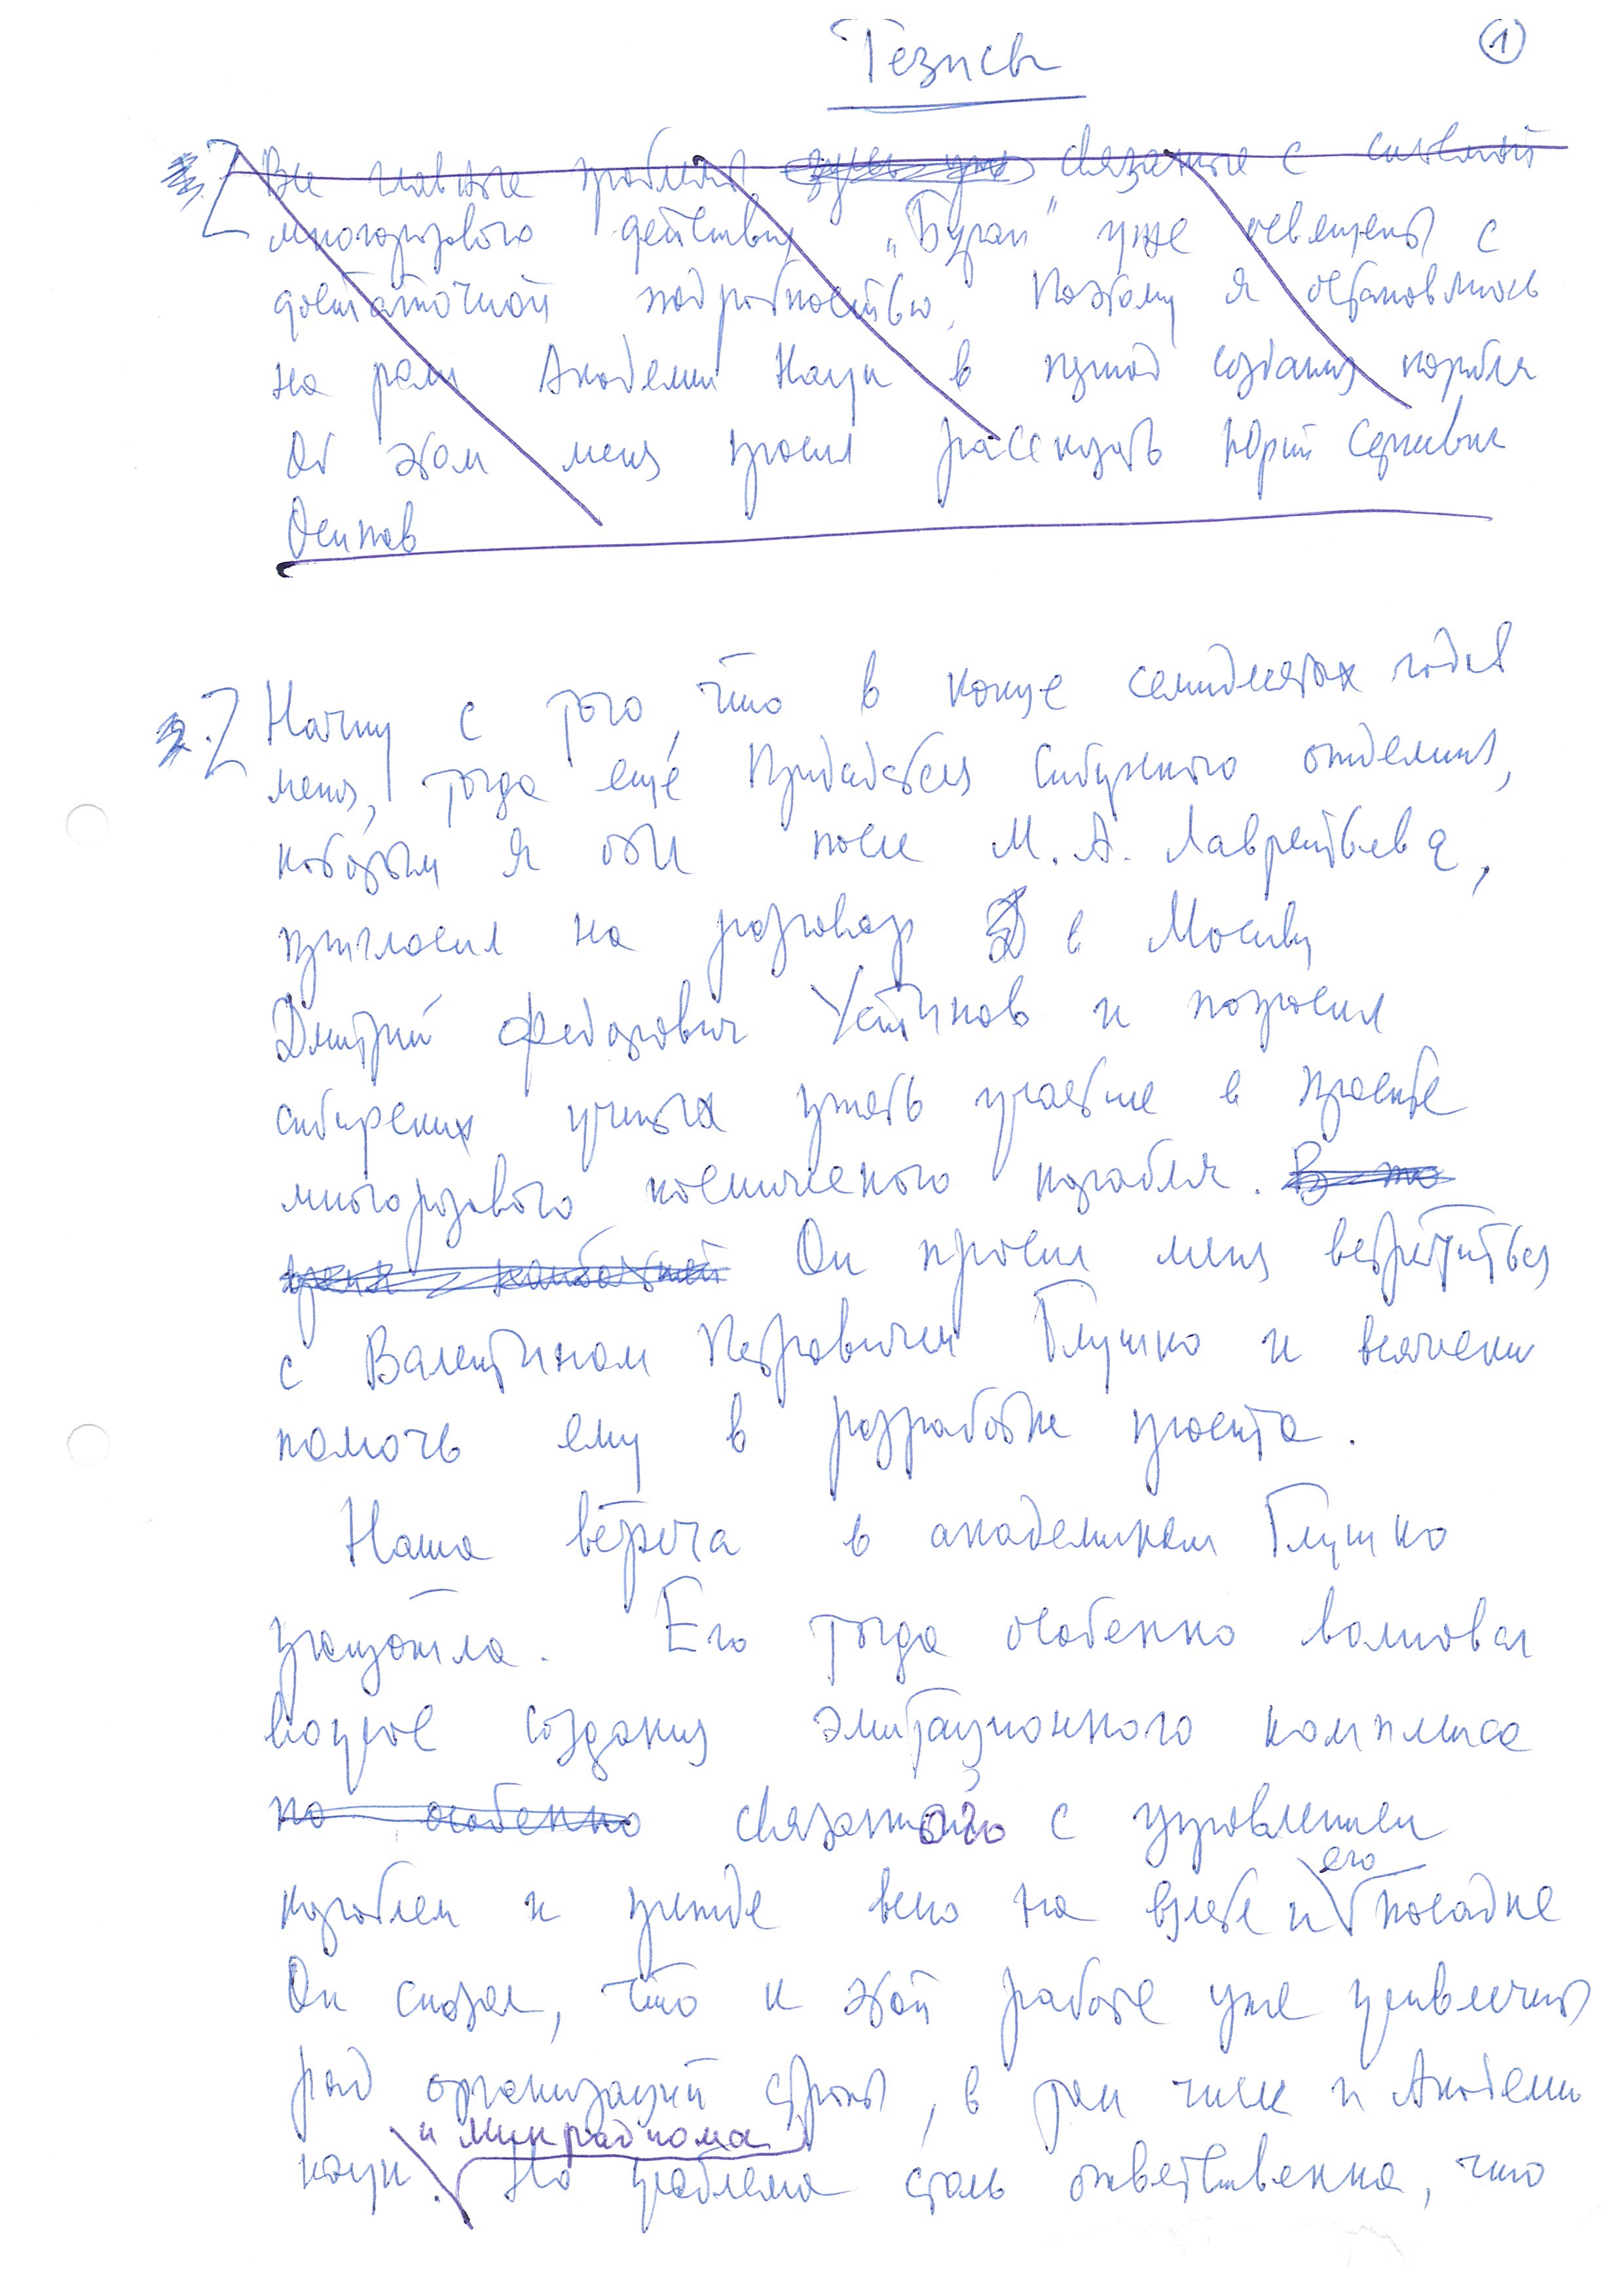 Тезисы
1
Все главные проблемы связанные с системой
многоразового действия „Буран" уже освещены с
достаточной подробностью. Поэтому я остановлюсь
на роли Академии Наук в период создания корабля
Об этом меня просил рассказать Юрий Сергеевич
Осипов
2. Начну с того, что в конце семидесятых годов
меня, тогда ещё Председателя Сибирского отделения,
которым я был после М. А. Лаврентьева,
пригласил на разговор в Москву
Дмитрий Федорович Устинов и попросил
сибирских ученых принять участие в проекте
многоразового космического корабля. В то
время Он просил меня встретиться
с Валентином Петровичем Глушко и всячески
помочь ему в разработке проекта.
Наша встреча с академиком Глушко
произошла. Его тогда особенно волновал
вопрос создания эмитационного комплекса
но особенно связанного с управлением
кораблем и прежде всего на взлете и его посадке
Он сказал, что к этой работе уже привлечены
ряд организаций страны, в том числе и Академии
наук и Минрадпома. Но проблема столь ответственна, что